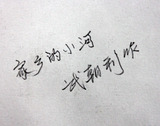 家乡的小河
武朝利咏